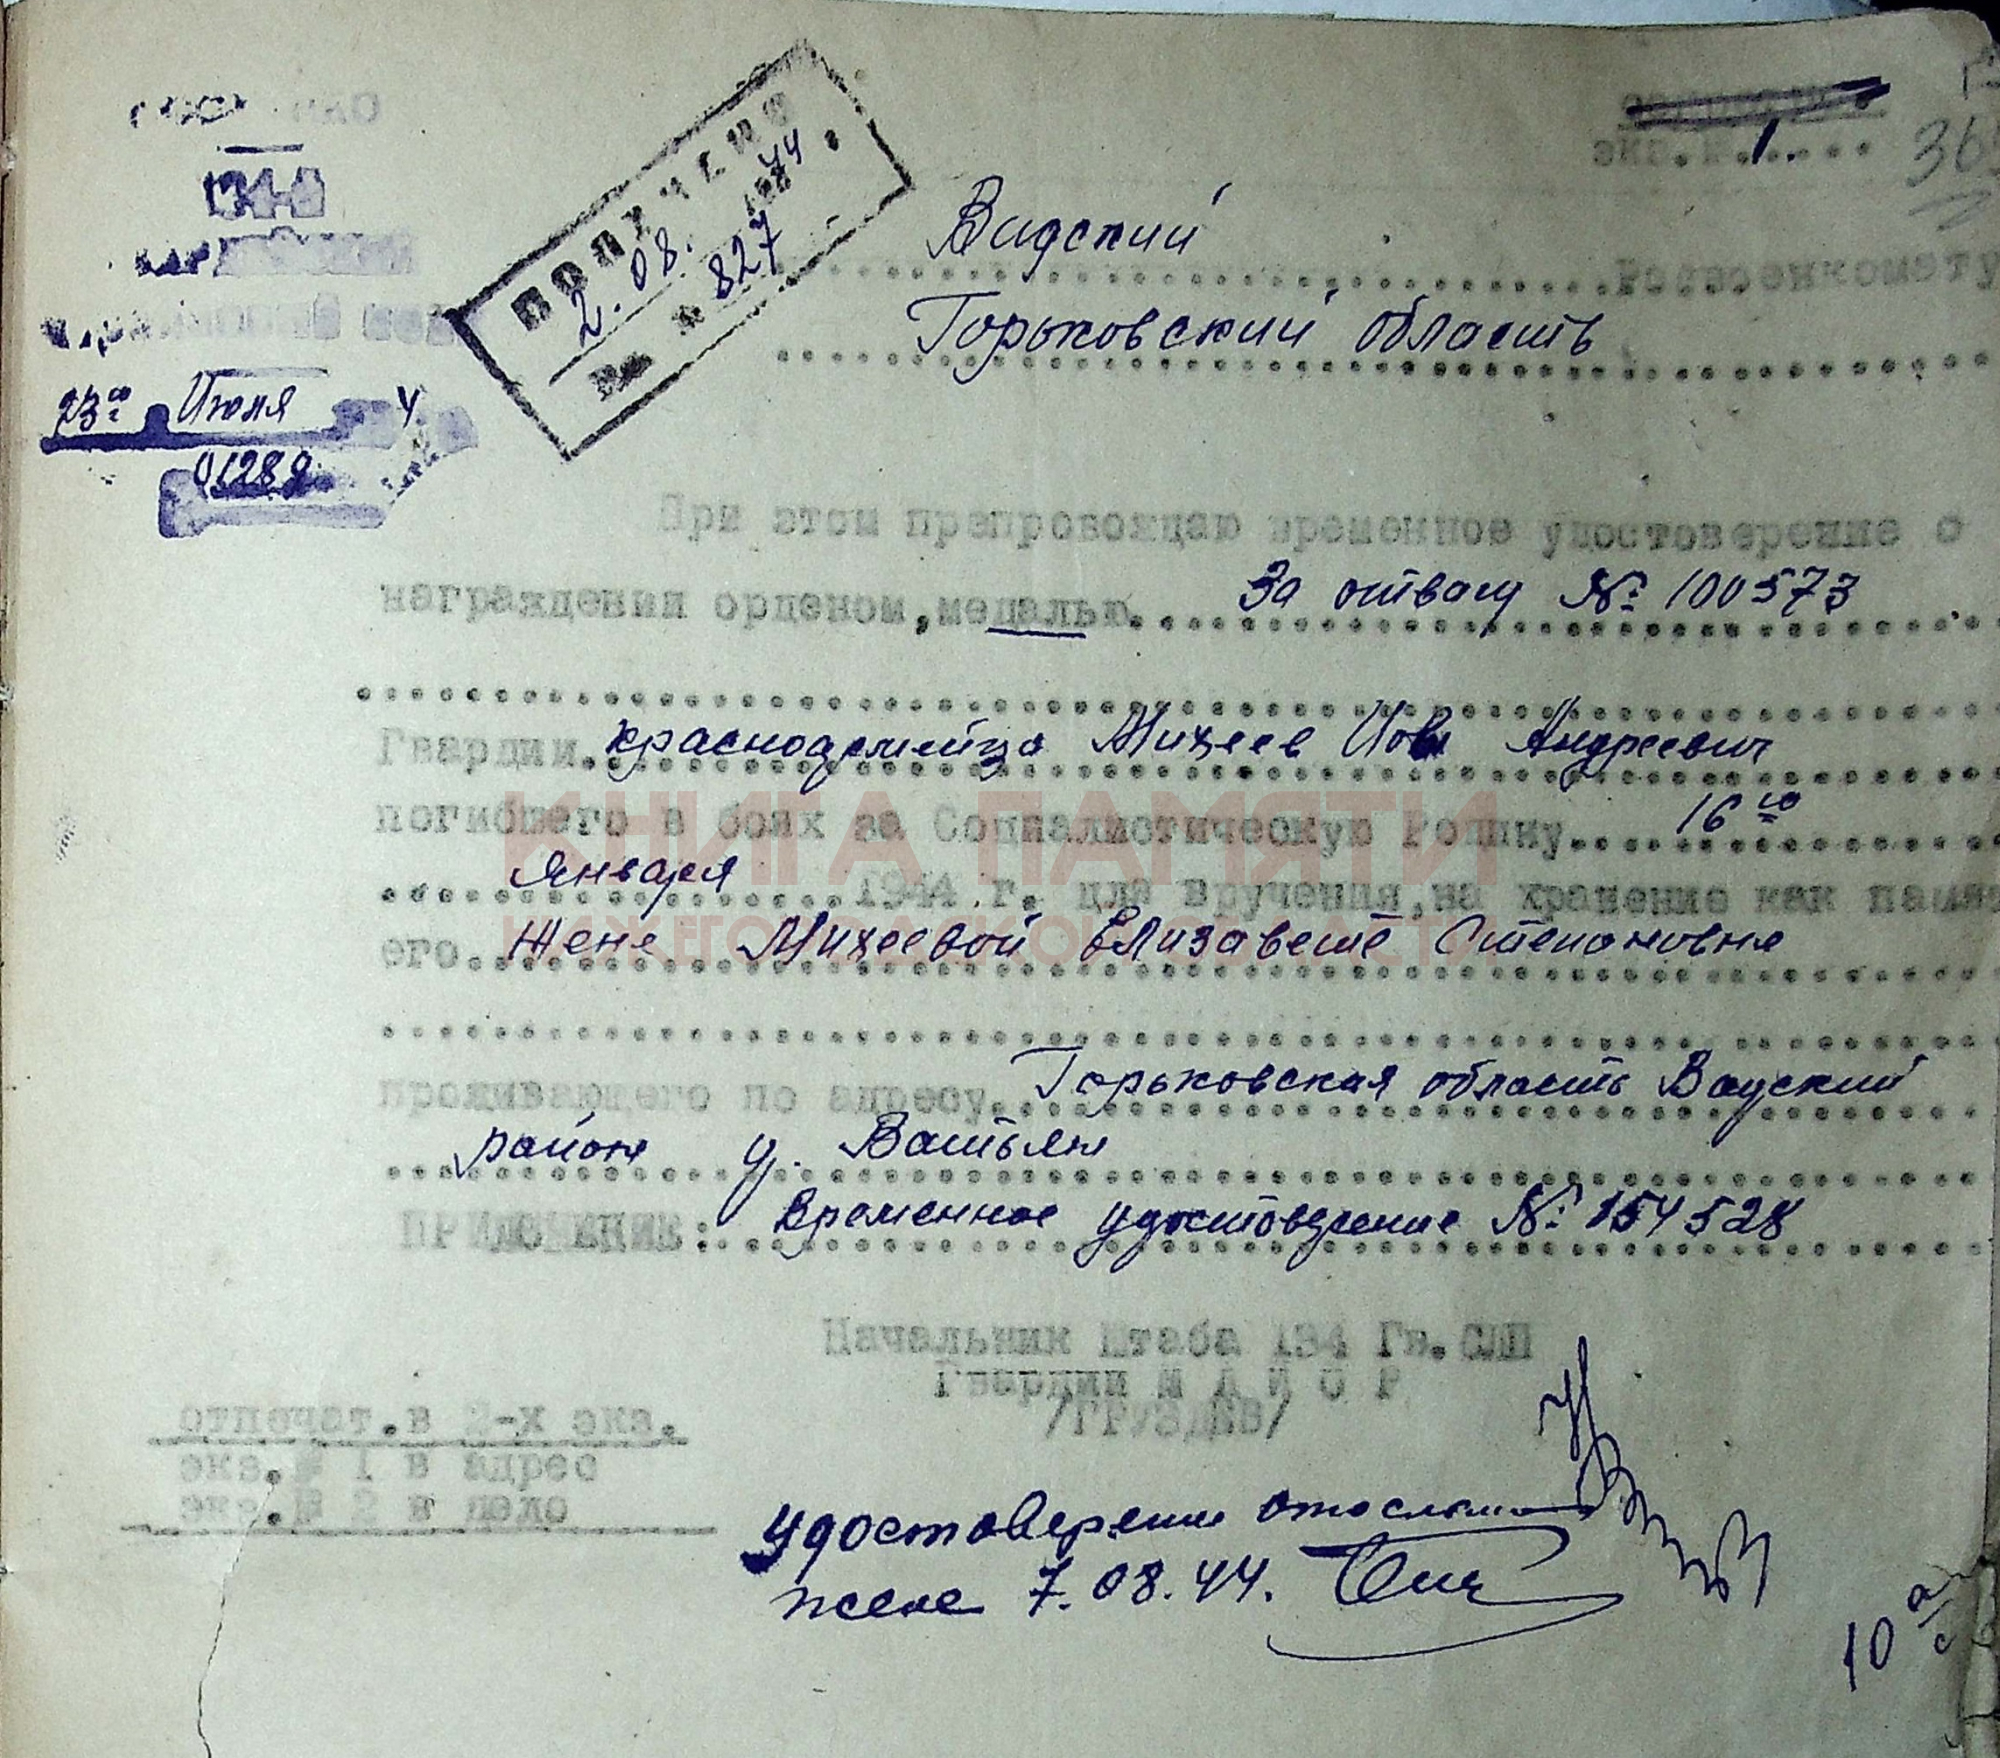 НКО
134-й
23го Июля 4
01289
ПОЛУЧЕНО
2. 08. 1944
Вх № 827
экз.№ 1.
36
Вадский Райвоенкомату
Горьковский область
При этом препровождаю временное удостоверение о
награждении орденом, медалью За отвагу № 100573
Гвардии красноармейца Михеев Иов Андреевич
погибшего в боях за Социалистическую Родину 16го
Января 1944 г. для вручения, на хранение как память
его Жене Михеевой Елизавете Степановне
проживающего по адресу Горьковская область Вадский
район д. Ватьян
ПРИЛОЖЕНИЕ: Временное удостоверение № 154528
Начальник Штаба 134 Гв. СП
Гвардии МАЙОР
/ГРУЗДЕВ/
отпечат. в 2-х экз.
экз. № 1 в адрес
экз. № 2 в дело
удостоверении отослым
жене 7.08.44.
10
КНИГА ПАМЯТИ
НИЖЕГОРОДСКОЙ ОБЛАСТИ